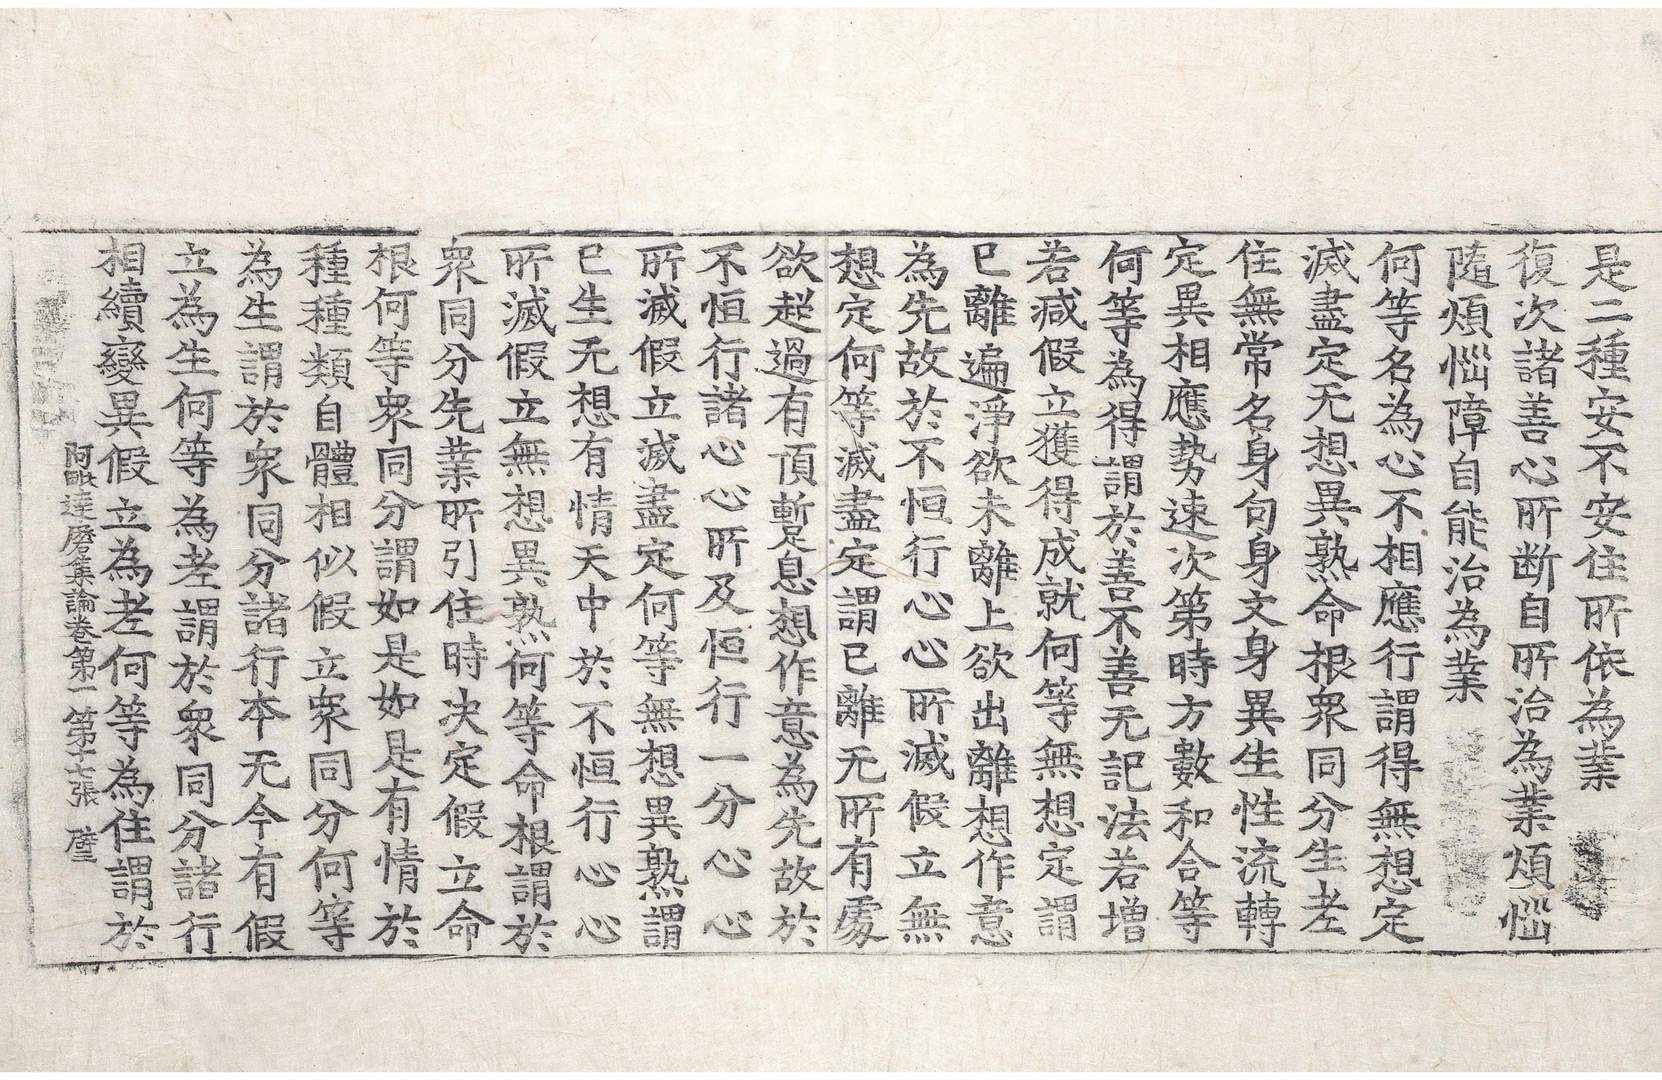 是二種安不安住所依為業
復次諸善心所断自所治為業煩惱
隨煩惱障自能治為業
何等名為心不相應行謂得無想定
滅盡定无想異熟命根衆同分生老
住無常名身句身文身異生性流轉
定異相應勢速次第時方數和合等
何等為得謂於善不善无記法若增
若减假立獲得成就何等無想定謂
已離遍淨欲未離上欲出離想作意
為先故於不恒行心心所滅假立無
想定何等滅盡定謂已離无所有處
欲超過有頂暫息想作意為先故於
不恒行諸心心所及恒行一分心心
所滅假立滅盡定何等無想異熟謂
已生无想有情天中於不恒行心心
所滅假立無想異熟何等命根謂於
衆同分先業所引住時决定假立命
根何等衆同分謂如是如是有情於
種種類自體相似假立衆同分何等
為生謂於衆同分諸行本无今有假
立為生何等為老謂於衆同分諸行
相續變異假立為老何等為住謂於
阿毗達磨集論卷第一 第十七張 璧